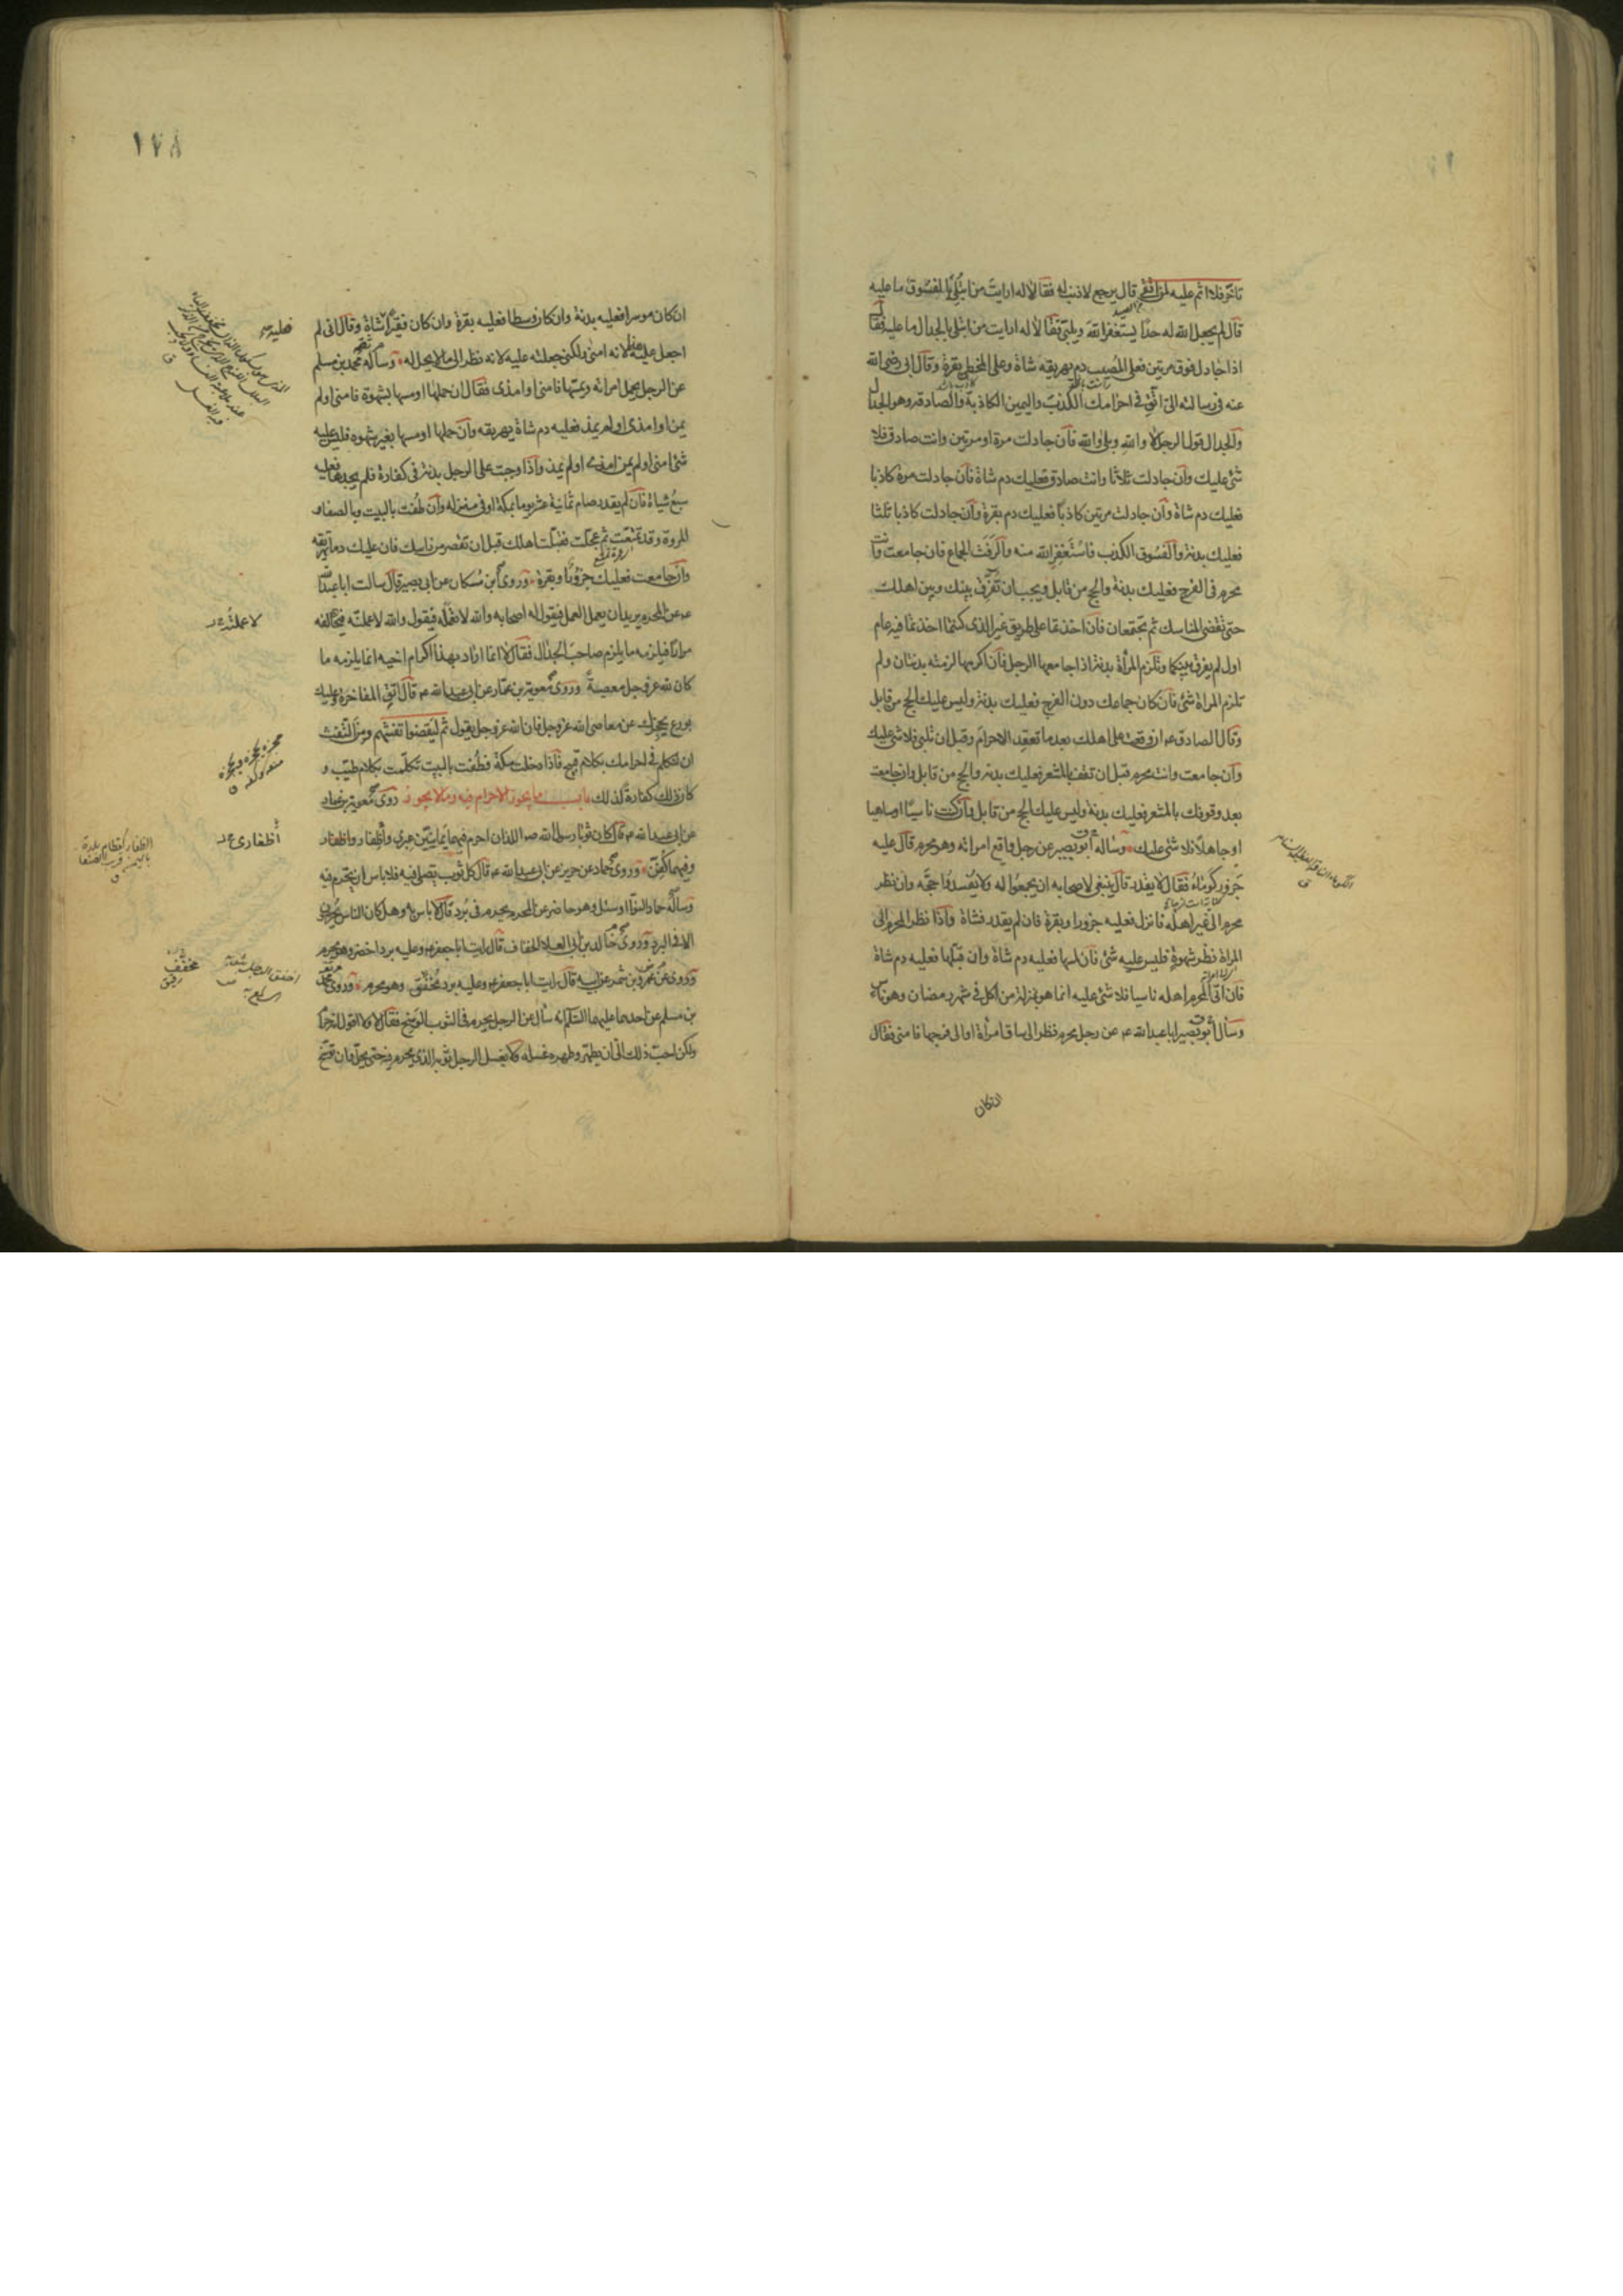 تأخر فلا اثم عليه لمن اتقى قال يرجع لا ذنب له فقالا له ارايت من ابتلى بالفسوق ما عليه
قال لم يجعل الله له حدا يستغفر الله ويلبي فقالا له ارايت من ابتلى بالجدال ما عليه فقال
اذا جادل فوق مرتين فعلى المصيب دم يهريقه شاة وعلى المخطى بقرة وقال ابى رضى الله
عنه فى رسالته الىّ اتق فى احرامك الكذب واليمين الكاذبة والصادقة وهو الجدال
والجدال قول الرجل لا والله وبلى والله فان جادلت مرة او مرتين وانت صادق فلا
شئ عليك وان جادلت ثلاثا وانت صادق فعليك دم شاة فان جادلت مرة كاذبا
فعليك دم شاة وان جادلت مرتين كاذبا فعليك دم بقرة وان جادلت كاذبا ثلثا
فعليك بدنة والفسوق الكذب فاستغفر الله منه والرفث الجماع فان جامعت وانت
محرم فى الفرج فعليك بدنة والحج من قابل ويجب ان تفرق بينك وبين اهلك
حتى تقضى المناسك ثم تجتمعان فان اخذتما على طريق غير الذى كنتما اخذتما فيه عام
اول لم يفرق بينكما وتلزم المرأة بدنة اذا جامعها الرجل فان اكرهها لزمته بدنتان ولم
تلزم المراة شئ فان كان جماعك دون الفرج فعليك بدنة وليس عليك الحج من قابل
وقال الصادق عم ان وقعت على اهلك بعد ما تعقد الاحرام وقبل ان تلبى فلا شئ عليك
وان جامعت وانت محرم قبل ان تقف بالمشعر فعليك بدنة والحج من قابل وان جامعت
بعد وقوفك بالمشعر فعليك بدنة وليس عليك الحج من قابل وان كنت ناسيا او ساهيا
او جاهلا فلا شئ عليك وساله ابو بصير عن رجل واقع امراته وهو محرم قال عليه
جزور كوماء فقال لا يقدر قال ينبغى لاصحابه ان يجمعوا له ولا يفسدوا حجه وان نظر
محرم الى غير اهله فانزل فعليه جزور او بقرة فان لم يقدر فشاة واذا نظر المحرم الى
المراة نظر شهوة فليس عليه شئ فان لمسها فعليه دم شاة وان قبلها فعليه دم شاة
فان اتى المحرم اهله ناسيا فلا شئ عليه انما هو بمنزلة من اكل فى شهر رمضان وهو ناس
وسأل ابو بصير ابا عبد الله عم عن رجل محرم نظر الى ساق امرأة او الى فرجها فامنى فقال
ان كان
١٧٨
ان كان موسرا فعليه بدنة وان كان وسطا فعليه بقرة وان كان فقيرا شاة وقال انى لم
اجعل عليه لانه امنى ولكنى جعلته عليه لانه نظر الى ما لا يحل له وساله محمد بن مسلم
عن الرجل يحمل امراته ويمسها فامنى او امذى فقال ان حملها او مسها بشهوة فامنى او لم
يمن او امذى او لم يمذ فعليه دم شاة يهريقه وان حملها او مسها بغير شهوة فليس عليه
شئ امنى او لم يمن امذى او لم يمذ واذا وجبت على الرجل بدنة فى كفارة فلم يجدها فعليه
سبع شياة فان لم يقدر صام ثمانية عشر يوما بمكة او فى منزله وان طفت بالبيت وبالصفا و
المروة وقد تمتعت ثم عجلت فقبلت اهلك قبل ان تقصر من راسك فان عليك دما تهريقه
وان جامعت فعليك جزورا وبقرة وروى ابن مسكان عن ابى بصير قال سالت ابا عبد الله
عم عن المحرم يريد ان يعمل العمل فيقول له اصحابه والله لا تعمله فيقول والله لاعملنه فيخالفه
مرارا فيلزمه ما يلزم صاحب الجدال فقال لا انما اراد بهذا اكرام اخيه انما يلزمه ما
كان لله عز وجل معصية وروى معوية بن عمار عن ابى عبد الله عم قال اتق المفاخرة وعليك
بورع يحجزك عن معاصى الله عز وجل فان الله عز وجل يقول ثم ليقضوا تفثهم ومن التفث
ان تتكلم فى احرامك بكلام قبيح فاذا دخلت مكة فطفت بالبيت تكلمت بكلام طيب و
كان ذلك كفارة لذلك باب ما يجوز الاحرام فيه وما لا يجوز روى معوية بن عمار
عن ابى عبد الله عم قال كان ثوبا رسول الله صه اللذان احرم فيهما يمانيين عبرى واظفار
وفيهما كفن وروى حماد عن حريز عن ابى عبد الله عم قال كل ثوب يصلى فيه فلا باس ان يحرم فيه
وساله حماد النوا او سئل وهو حاضر عن المحرم يحرم فى برد قال لا باس به وهل كان الناس يحرمون
الا فى البرد وروى خالد بن ابى العلاء الخفاف قال رايت ابا جعفر عم وعليه برد اخضر وهو محرم
وروى عن عمرو بن شمر عن ابيه قال رايت ابا جعفر عم وعليه برد مخفف وهو محرم وروى محمد
بن مسلم عن احدهما عليهما السلام انه سأل عن الرجل يحرم فى الثوب الوسخ فقال لا ولا اقول انه حرام
ولكن احب ذلك الىّ ان يطهر وطهره غسله ولا يغسل الرجل ثوبه الذى يحرم فيه حتى يحل وان توسخ
فعليه
لاعملنه
اظفارى
الظفار كقطام بلدة
باليمن قرب صنعا
مخفف